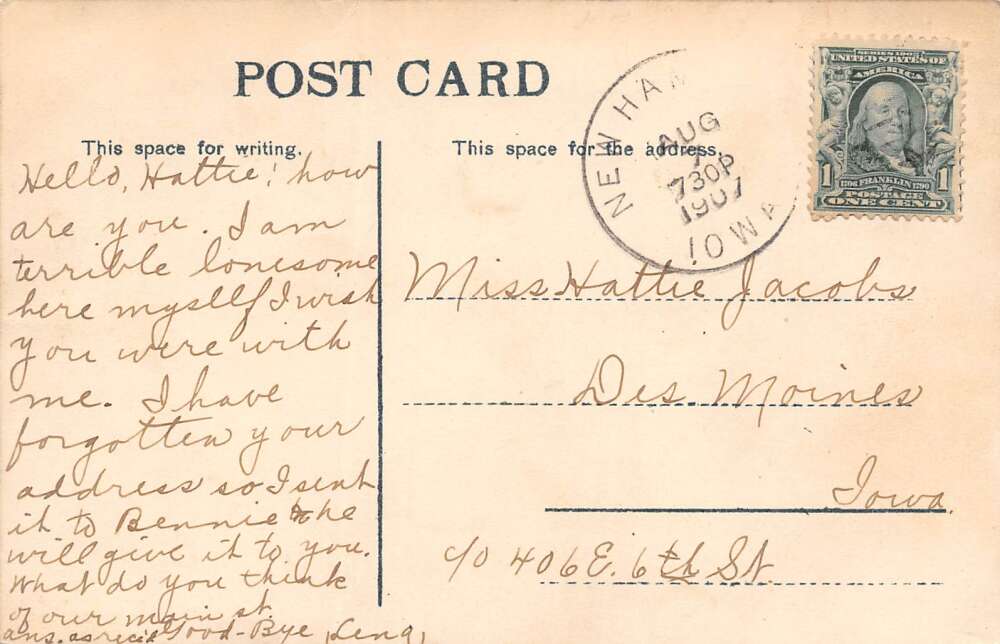 POST CARD
This space for writing.
Hello, Hattie! how
are you. I am
terrible lonesome
here myself I wish
you were with
me. I have
forgotten your
address so I sent
it to Bennie & he
will give it to you.
What do you think
of our main st.
ans. as rec'd Good-Bye, Lena,
This space for the address.
Miss Hattie Jacobs
Des. Moines
Iowa.
c/o 406 E. 6th St.
NEW HAM
AUG
7
730P
1907
IOWA
SERIES 1902
UNITED STATES OF
AMERICA
1706 FRANKLIN 1790
1 POSTAGE 1
ONE CENT